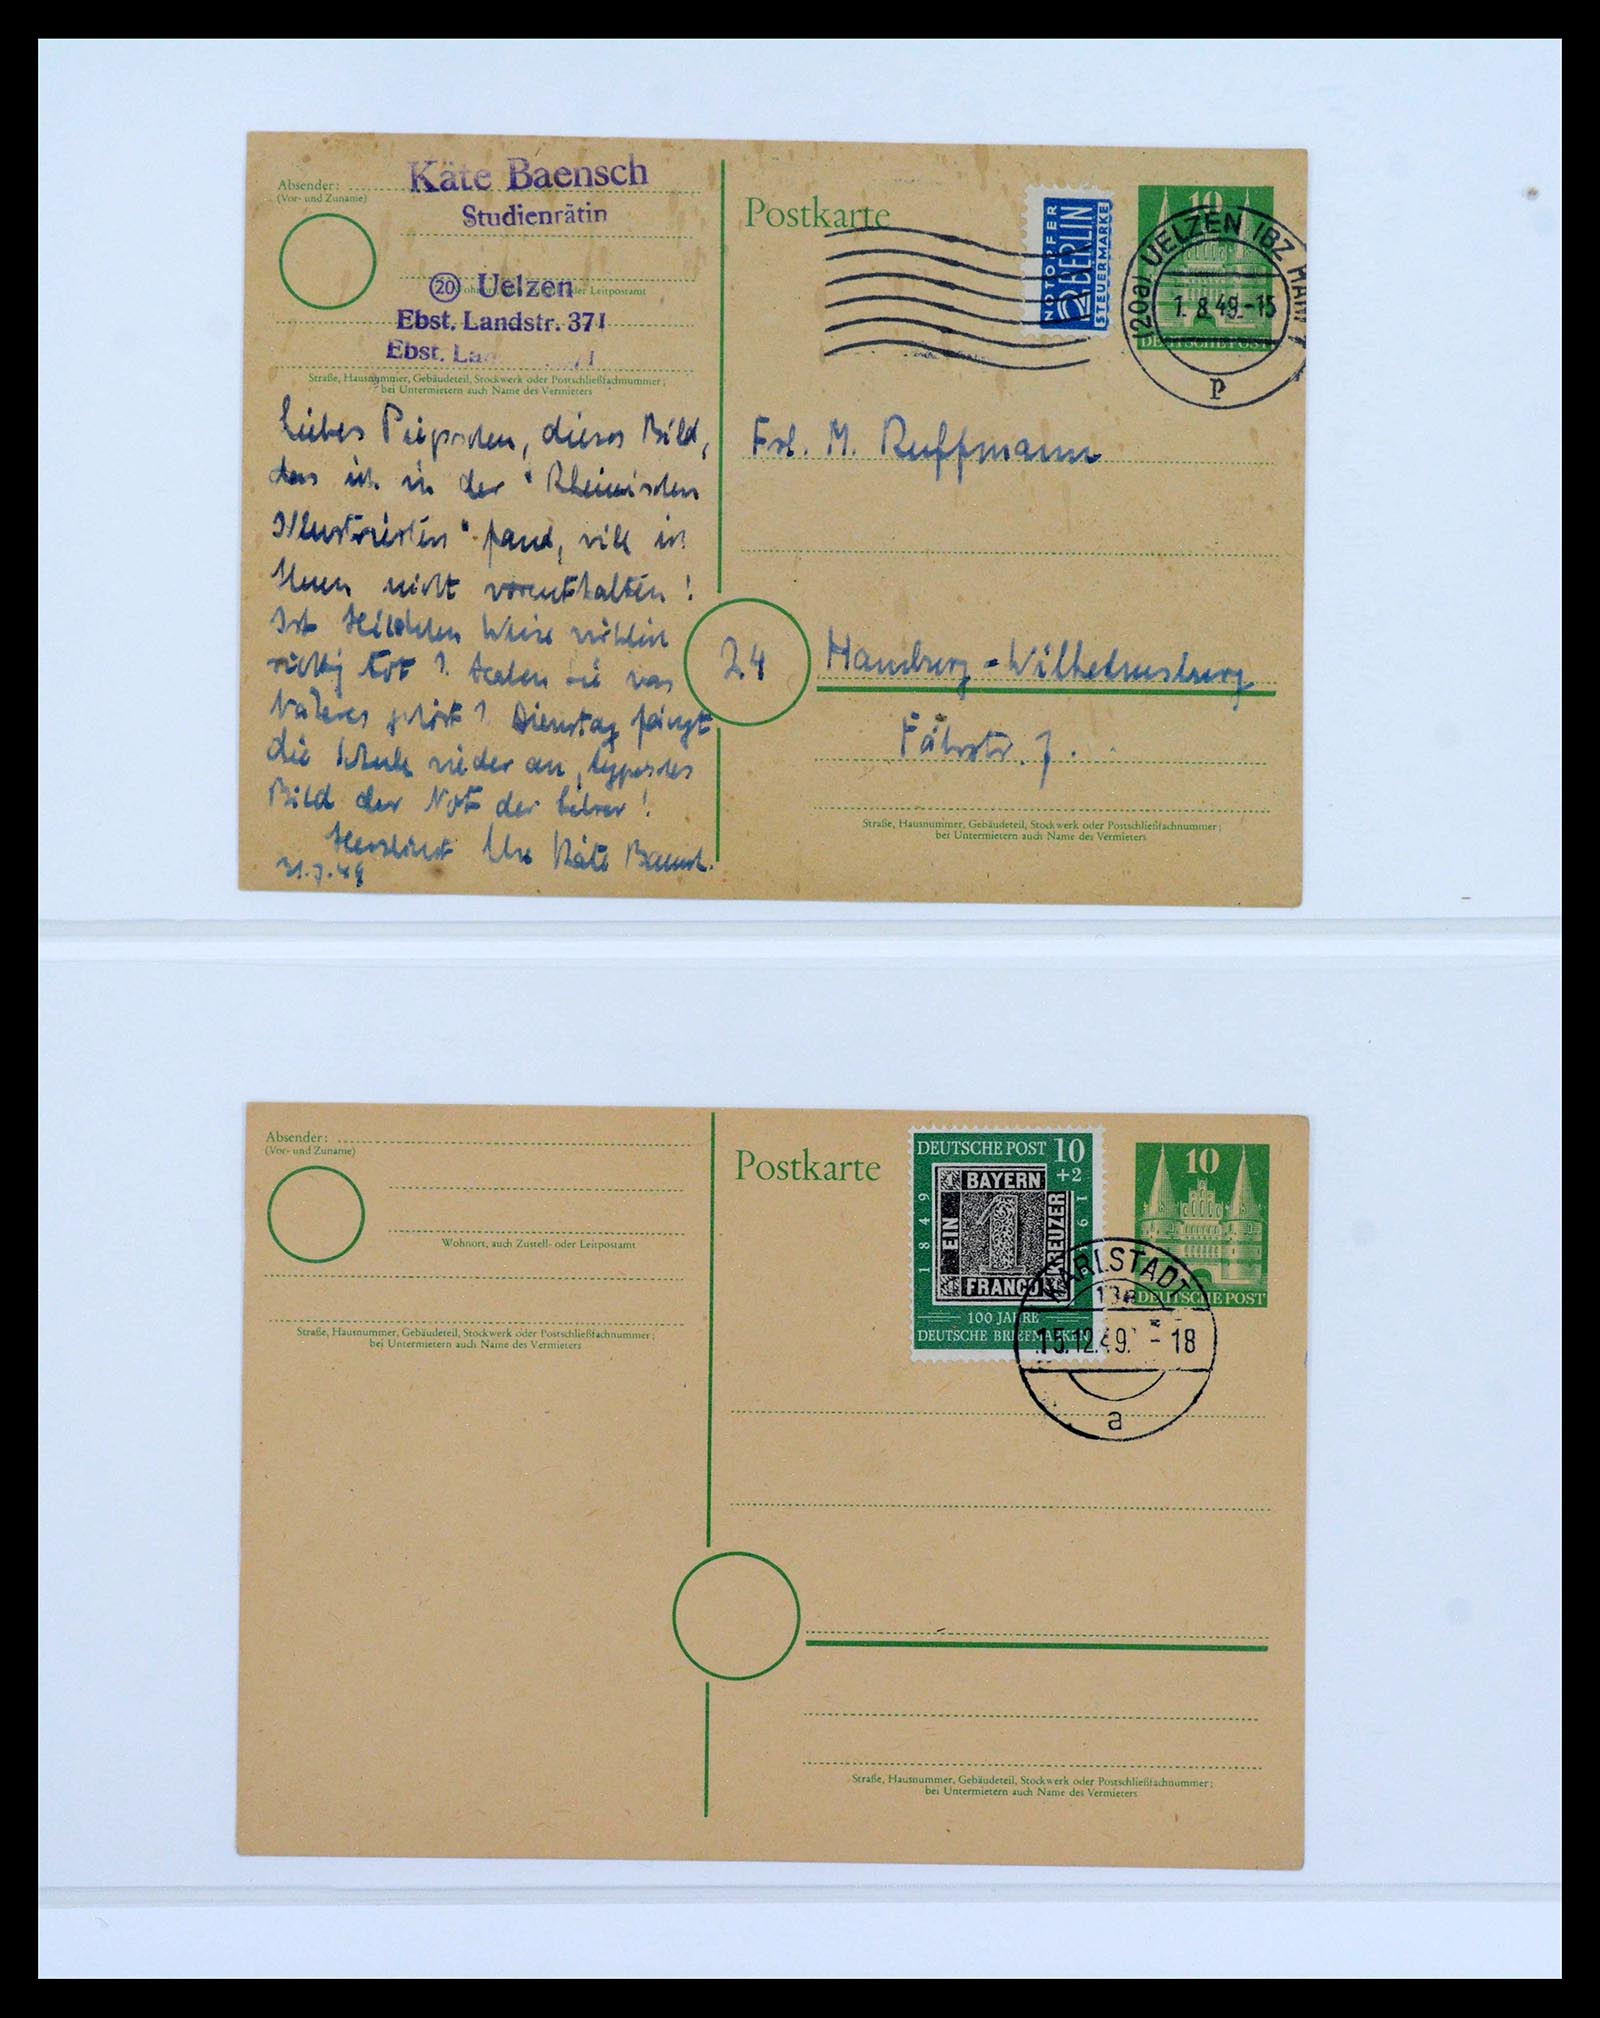 Absender:
(Vor- und Zuname)
Käte Baensch
Studienrätin
20 Uelzen
Wohnort, der Leitpostamt
Ebst. Landstr. 371
Ebst. La
Straße, Hausnummer, Gebäudeteil, Stockwerk oder Postschließfachnummer;
bei Untermietern auch Name des Vermieters
Liebes dieses Bild,
das ich in der "Rheinischen
Illustrierten" fand, will ich
Ihnen nicht vorenthalten!
Ist
richtig tot? Haben Sie was
Näheres gehört? Dienstag fängt
die Schule wieder an, typisches
Bild der Not der Lehrer!
Herzlichst Ihre Käte Baensch.
31.7.49
Postkarte
NOTOPFER
2 BERLIN
STEUERMARKE
10
DEUTSCHE POST
(20a) UELZEN (BZ HANN)
1. 8. 49.-15
p
Frl. M. Ruffmann
24
Hamburg-Wilhelmsburg
Fährstr. 7.
Straße, Hausnummer, Gebäudeteil, Stockwerk oder Postschließfachnummer;
bei Untermietern auch Name des Vermieters
Absender:
(Vor- und Zuname)
Wohnort, auch Zustell- oder Leitpostamt
Straße, Hausnummer, Gebäudeteil, Stockwerk oder Postschließfachnummer;
bei Untermietern auch Name des Vermieters
Postkarte
DEUTSCHE POST 10
+2
1849
19
BAYERN
EIN
1
KREUZER
FRANCO
100 JAHRE
DEUTSCHE BRIEFMARKEN
10
DEUTSCHE POST
KARLSTADT
13a
15.12.49. - 18
a
Straße, Hausnummer, Gebäudeteil, Stockwerk oder Postschließfachnummer;
bei Untermietern auch Name des Vermieters